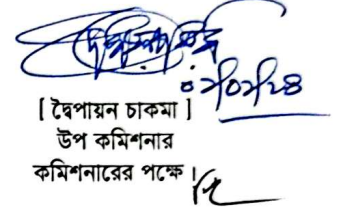 [ দ্বৈপায়ন চাকমা ]
উপ কমিশনার
কমিশনারের পক্ষে।